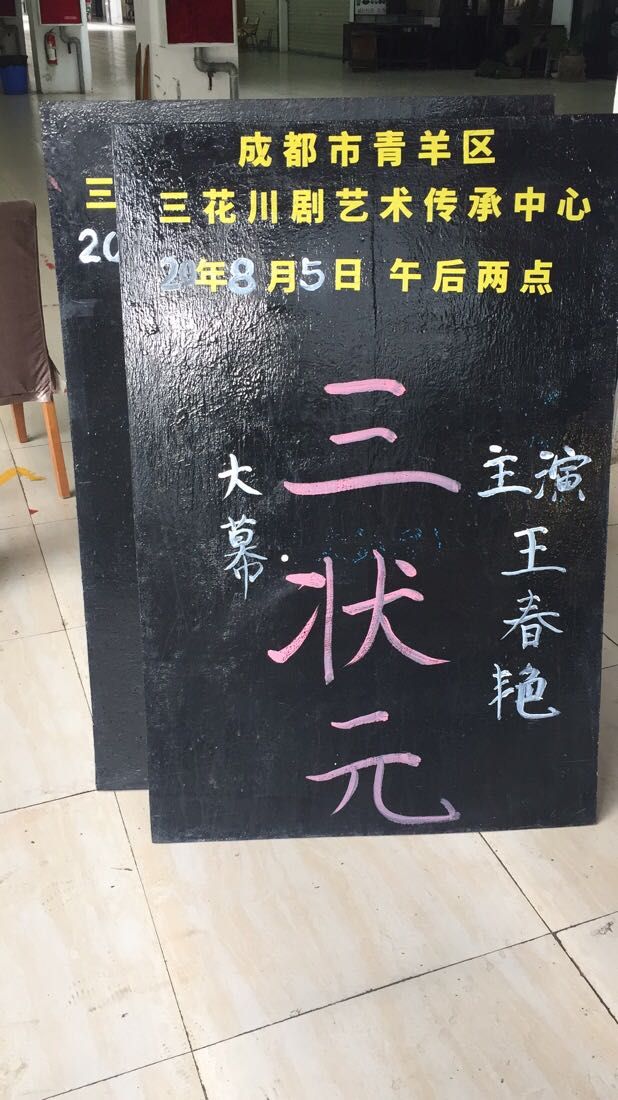 成都市青羊区
三花川剧艺术传承中心
20年8月5日 午后两点
主演
王春艳
三状元
大幕
三
20